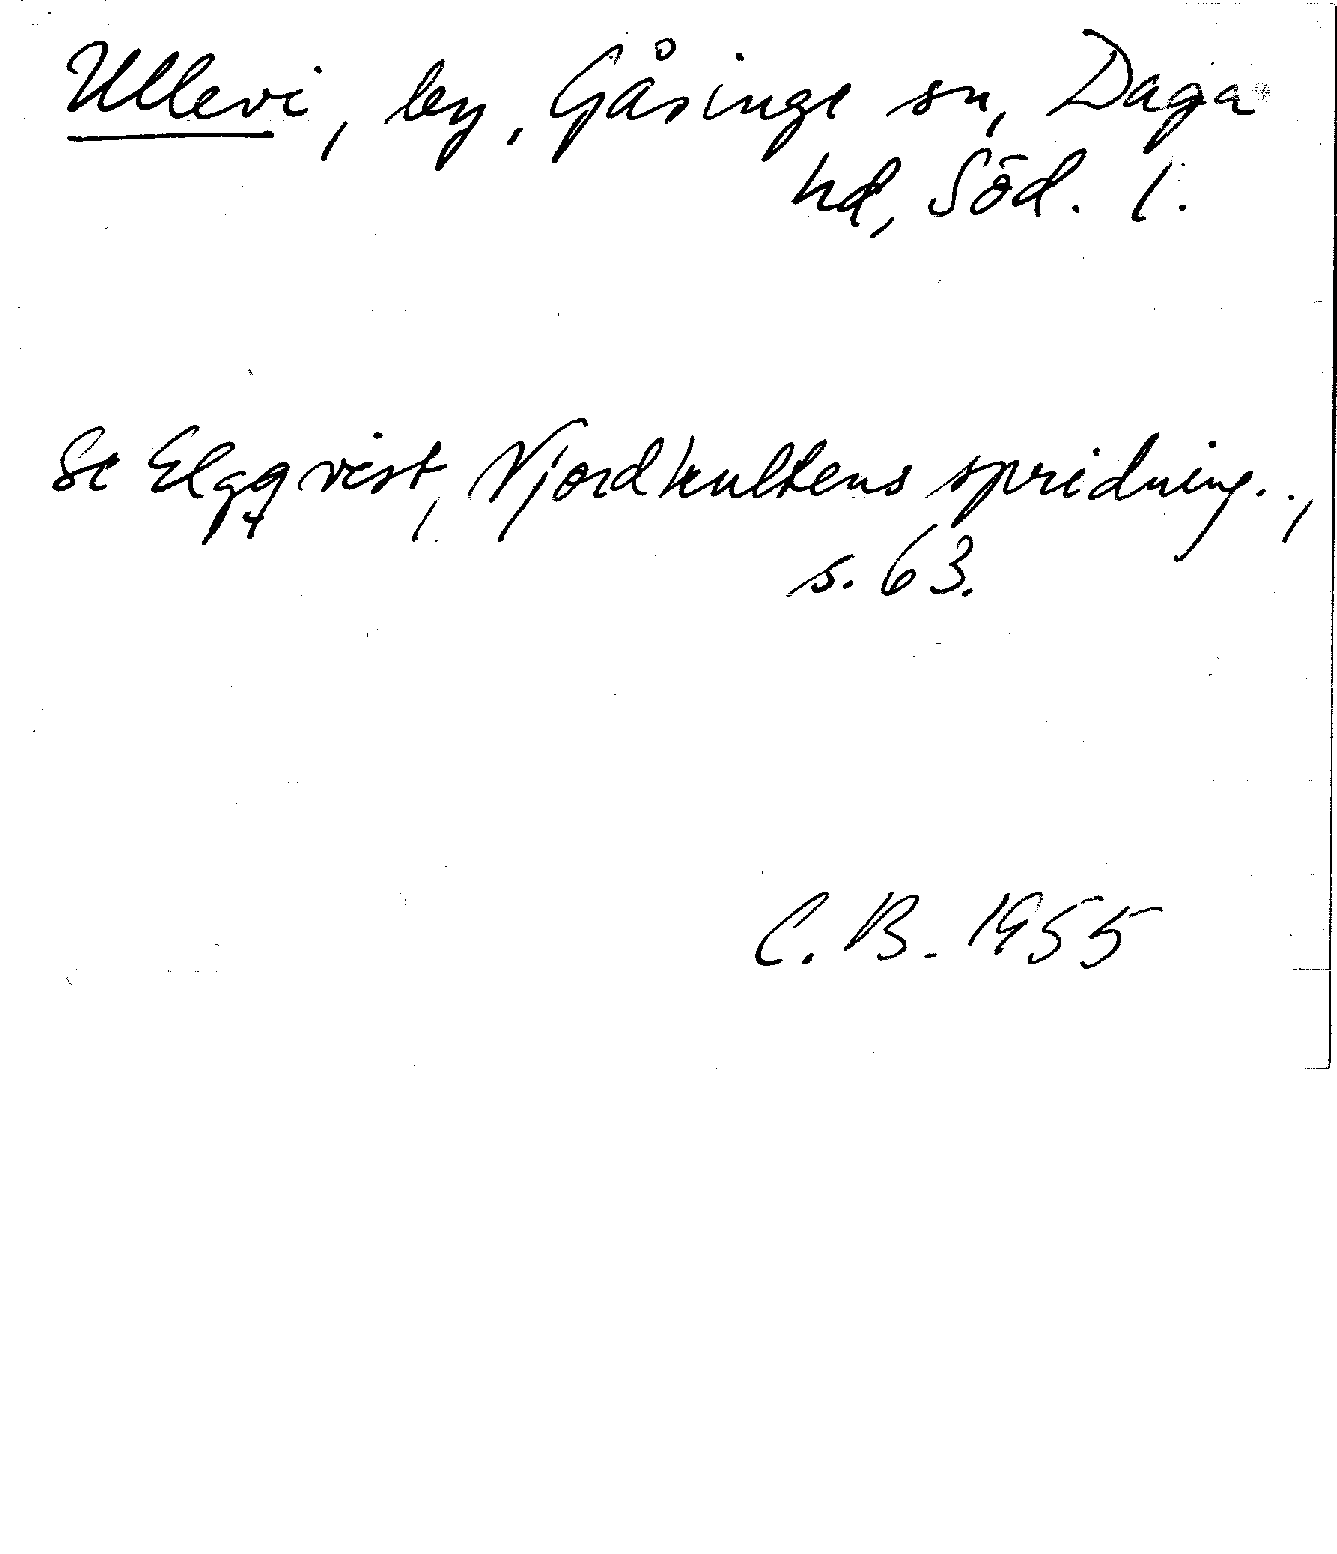 Ullevi, by, Gåsinge sn, Daga
hd, Söd. l.
Se Elgqvist, Njordkultens spridning..,
s. 63.
C. B. 1955